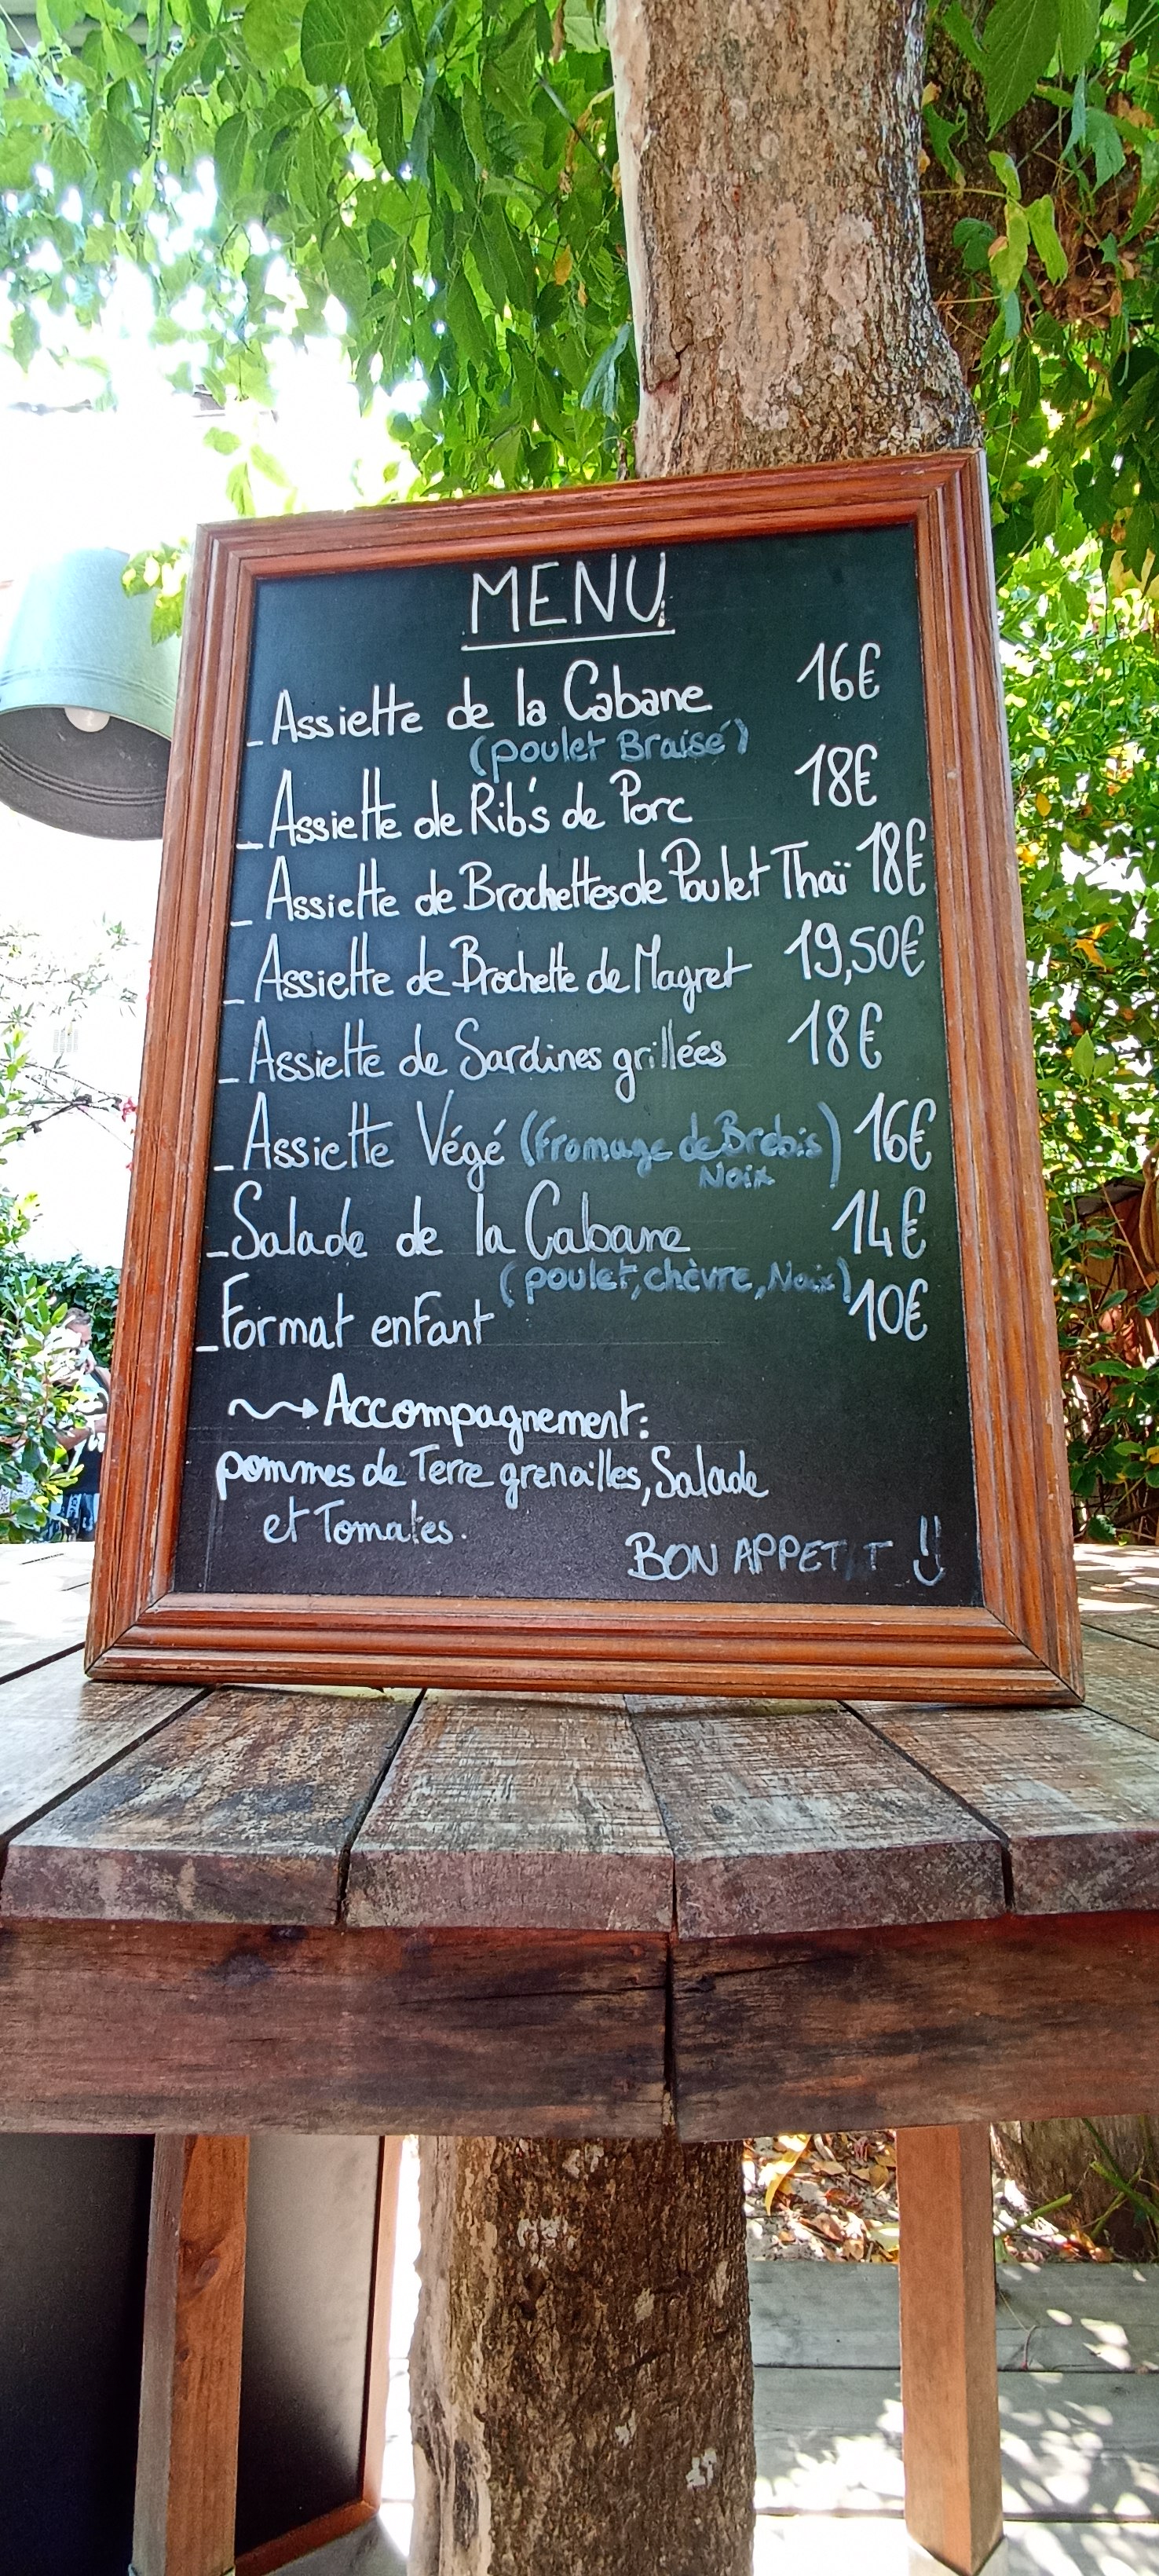 MENU
_Assiette de la Cabane 16€
(poulet Braisé)
_Assiette de Rib's de Porc 18€
_Assiette de Brochettes de Poulet Thaï 18€
_Assiette de Brochette de Magret 19,50€
_Assiette de Sardines grillées 18€
_Assiette Végé (fromage de Brebis) 16€
Noix
_Salade de la Cabane 14€
(poulet, chèvre, Noix)
_Format enfant 10€
Accompagnement:
pommes de Terre grenailles, Salade
et Tomates.
BON APPETIT !!